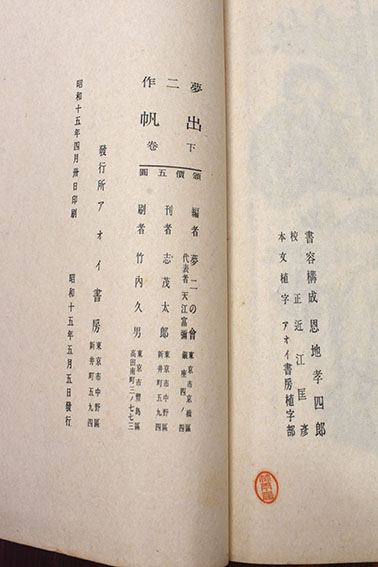 書容構成 恩地孝四郎
校正 近江匡彦
本文植字 アオイ書房植字部
夢二作
出帆
下卷
頒價五圓
編者 夢二の會
代表者 天江富彌
東京市京橋區
銀座四ノ四
刊者 志茂太郎
東京市中野區
新井町五九四
刷者 竹内久男
東京市豐島區
高田南町三ノ七七三
發行所 アオイ書房
東京市中野區
新井町五九四
昭和十五年四月卅日印刷
昭和十五年五月五日發行